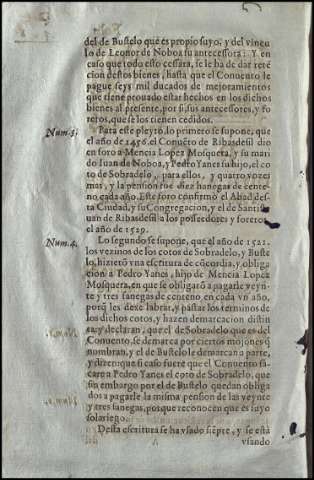 del de Bustelo que es propio suyo, y del vincu
lo de Leonor de Noboa su antecessora: Y en
caso que todo esto cessara, se le ha de dar retẽ
cion destos bienes, hasta que el Conuento le
pague seys mil ducados de mejoramientos
que tiene prouado estar hechos en los dichos
bienes al presente, por si, sus antecessores, y fo
reros, que se los tienen cedidos.
Num. 3. Para este pleyto, lo primero se supone, que
el año de 1456. el Conuẽto de Ribasdesil dio
en foro a Mencia Lopez Mosquera, y su mari
do Iuan de Noboa, y Pedro Yanes su hijo, el co
to de Sobradelo, para ellos, y quatro vozes
mas, y la pension fue diez hanegas de cente
no cada año. Este foro confirmò el Abad des
ta Ciudad, y su Congregacion, y el de Santiste
uan de Ribasdesil a los posseedores y foreros
el año de 1529.
Num. 4. Lo segundo se supone, que el año de 1521.
los vezinos de los cotos de Sobradelo, y Buste
lo, hizierõ vna escritura de cõcordia, y obliga
cion a Pedro Yanes, hijo de Mencia Lopez
Mosquera, en que se obligarõ a pagarle veyn
te y tres fanegas de centeno, en cada vn año,
porq̃ les dexe labrar, y pastar los terminos de
los dichos cotos, y hazen demarcacion distin
ta, y declaran, que el de Sobradelo que es del
Conuento, se demarca por ciertos mojones q̃
nombran, y el de Bustelo le demarcan a parte,
y dizen que si caso fuere que el Conuento sa
cara a Pedro Yanes el coto de Sobradelo, que
sin embargo por el de Bustelo quedan obliga
dos a pagarle la misma pension de las veynte
y tres fanegas, porque reconocen que es suyo
solariego.
Desta escritura se ha vsado siẽpre, y se està
vsando